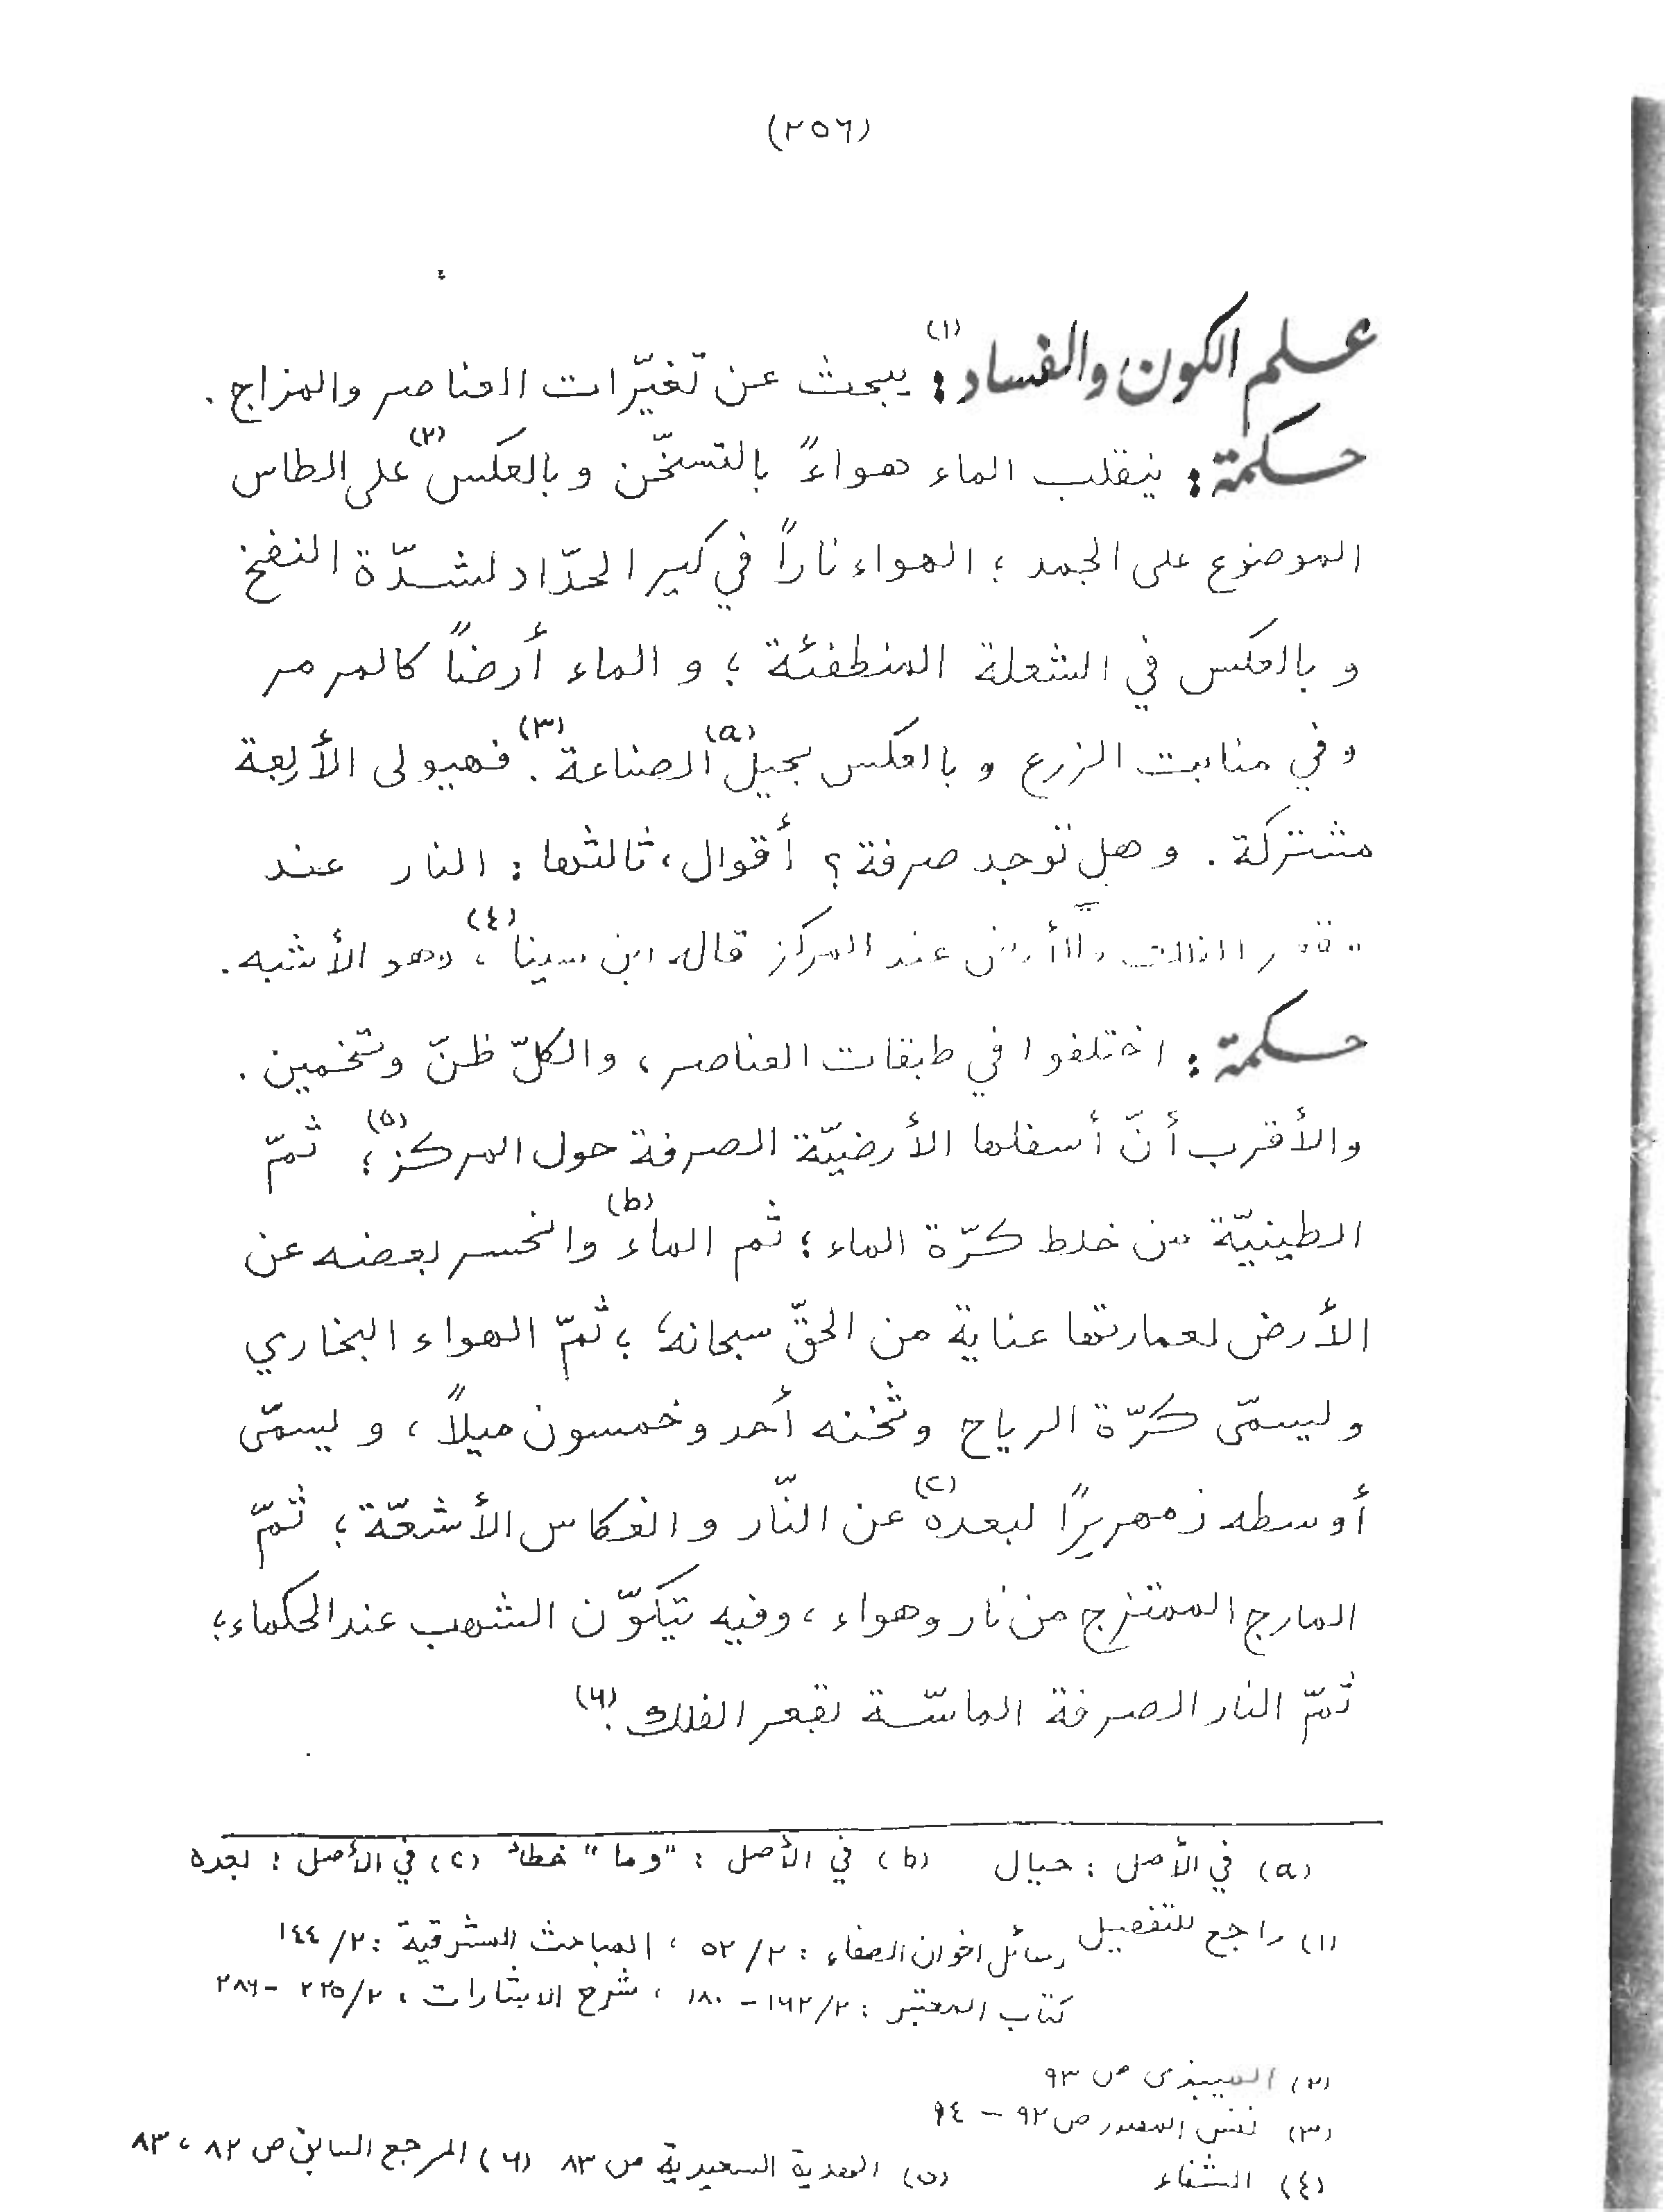 (٢٥٦)
علم الكون والفساد(١): يبحث عن تغيّرات العناصر والمزاج .
حكمة : ينقلب الماء هواءً بالتسخّن وبالعكس(٢) على الطاس
الموضوع على الجمد ؛ الهواء ناراً في كير الحدّاد لشدّة النفخ
وبالعكس في الشعلة المنطفئة ؛ و الماء أرضاً كالمرمر
وفي منابت الزرع وبالعكس بحيل(a) الصناعة(٣) . فهيولى الأربعة
مشتركة . وهل توجد صرفة ؟ أقوال ، ثالثها : النار عند
عند المركز قاله ابن سينا(٤) ، وهو الأشبه .
حكمة : اختلفوا في طبقات العناصر ، والكلّ ظنّ وتخمين .
والأقرب أنّ أسفلها الأرضيّة الصرفة حول المركز(٥) ؛ ثمّ
الطينيّة من خلط كرّة الماء ؛ ثم الماء(b) وانحسر بعضه عن
الأرض لعمارتها عناية من الحقّ سبحانه ؛ ثمّ الهواء البخاري
ويسمّى كرّة الرياح وثخنه أحد وخمسون ميلاً ، و يسمّى
أوسطه زمهريرًا لبعده(c) عن النّار و انعكاس الأشعّة ؛ ثمّ
المارج الممتزج من نار وهواء ، وفيه يتكوّن الشهب عند الحكماء ؛
ثمّ النار الصرفة الماسّة بقعر الفلك .(٦)
(a) في الأصل : حيال (b) في الأصل : "وما" خطأ (c) في الأصل : بعده
(١) راجع للتفصيل رسائل اخوان الصفاء : ٢/ ٥٢ ، المباحث المشرقية : ٢/ ١٤٤
كتاب المعتبر : ٢/ ١٦٢ - ١٨٠ ، شرح الاشارات ، ٢/ ٢٣٥ - ٢٨٦
(٢) الميبذى ص ٩٣
(٣) نفس المصدر ص ٩٢ - ٩٤
(٤) الشفاء (٥) الهدية السعيدية ص ٨٣ (٦) المرجع السابق ص ٨٢ ، ٨٣